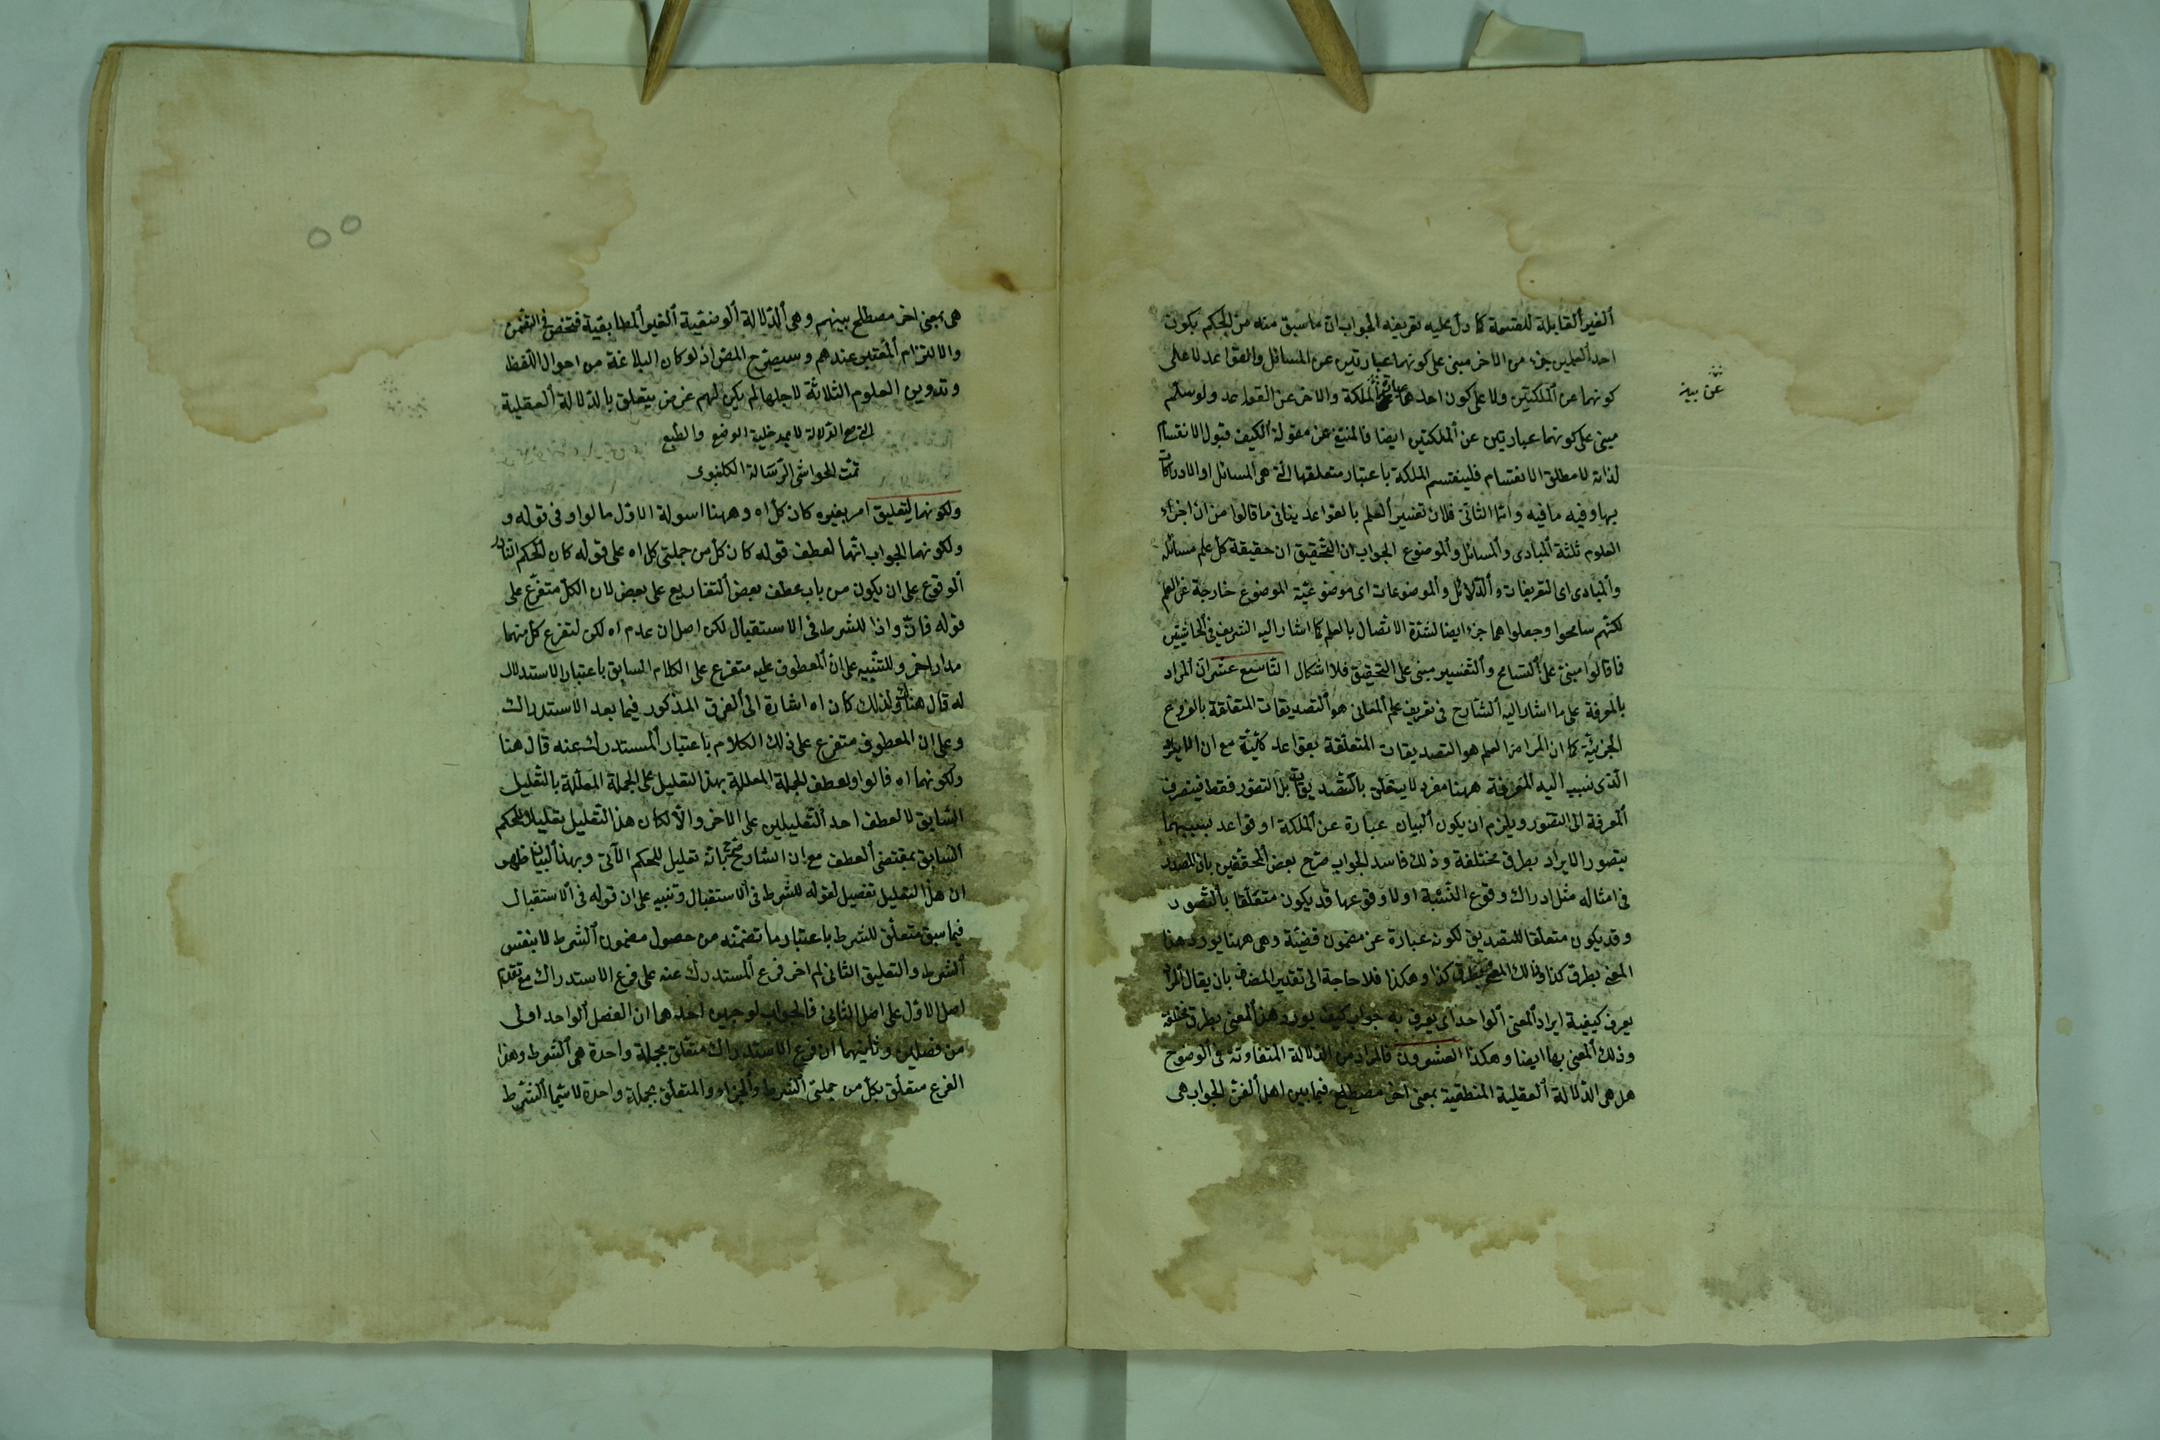 الغير القابلة للقسمة كما دل عليه تعريفه الجواب ان ما سبق منه من الحكم بكون
احد العلمين جزء من الاخر مبنى على كونهما عبارتين عن المسائل والقواعد لا على
كونهما عن الملكتين ولا على كون احدهما عبارة عن الملكة والاخر عن القواعد ولو سلم
عن بينة
مبنى على كونهما عبارتين عن الملكتين ايضا فالمنتفى عن مقولة الكيف قبول الانقسام
لذاته لا مطلق الانقسام فلينقسم الملكة باعتبار متعلقها التى هى المسائل او الادراكات
بها وفيه ما فيه واما الثانى فلان تفسير العلم بالقواعد ينافى ما قالوا من ان اجزاء
العلوم ثلثة المبادى والمسائل والموضوع الجواب ان التحقيق ان حقيقة كل علم مسائله
والمبادى اى التعريفات والدلائل والموضوعات اى موضوعية الموضوع خارجة عن العلم
لكنهم سامحوا وجعلواهما جزء ايضا لشدة الاتصال بالعلم كما اشار اليه الشريف فى الحاشيتين
فما قالوا مبنى على التسامح والتفسير مبنى على التحقيق فلا اشكال التاسع عشر ان المراد
بالمعرفة على ما اشار اليه الشارح فى تعريف علم المعانى هو التصديقات المتعلقة بالفروع
الجزئية كما ان المراد من العلم هو التصديقات المتعلقة بقواعد كلية مع ان الايراد
الذى نسب اليه المعرفة ههنا مفرد لا يتعلق بالتصديقات بل التصور فقط فينصرف
المعرفة الى التصور ويلزم ان يكون البيان عبارة عن الملكة او قواعد بسببهما
يتصور الايراد بطرق مختلفة وذلك فاسد الجواب صرح بعض المحققين بان المصدر
فى امثاله مثل ادراك وقوع النسبة او لا وقوعها قد يكون متعلقا بالتصور
وقد يكون متعلقا للتصديق لكونه عبارة عن مضمون قضية وهى ههنا يورد هذا
المعنى بطرق كذا وذلك المعنى بطرق كذا وهكذا فلا حاجة الى تقدير المضاف بان يقال المراد
يعرف كيفية ايراد المعنى الواحد اى يعرف به جواب كيف يورد هذا المعنى بطرق مختلفة
وذلك المعنى بها ايضا وهكذا العشرون فالمراد من الدلالة المتفاوتة فى الوضوح
هل هى الدلالة العقلية المنطقية بمعنى اخر مصطلح فيما بين اهل الفن الجواب هى
هى بمعنى اخر مصطلح بينهم وهى الدلالة الوضعية الغير المطابقية فتختص فى التضمن
والالتزام المعتبر عندهم وسيصرح المص اذ لو كان البلاغة من احوال اللفظ
وتدوين العلوم الثلاثة لاجلها لم يكن لهم غرض يتعلق بالدلالة العقلية
التى هى الدلالة لا بمدخلية الوضع والطبع
تمت الحواشى الرسالة الكلنبوى
ولكونهما لتعليق امر بغيره كان كل اه وههنا اسولة الاول ما الواو فى قوله و
ولكونهما الجواب انها لعطف قوله كان كل من جملتى كل اه على قوله كان للحكم
الوقوع على ان يكون من باب عطف بعض التفاريع على بعض لان الكل متفرع على
قوله فان واذا للشرط فى الاستقبال لكن اصل ان عدم اه لكن لتفرع كل منهما
مدار اخر وللتنبيه على ان المعطوف عليه متفرع على الكلام السابق باعتبار الاستدلال
له قال هناك ولذلك كان اه اشارة الى الفرق المذكور فيما بعد الاستدراك
وعلى ان المعطوف متفرع على ذلك الكلام باعتبار المستدرك عنه قال هنا
ولكونهما اه فالواو لعطف الجملة المعللة بهذا التعليل على الجملة المعللة بالتعليل
السابق لا لعطف احد التعليلين على الاخر والا لكان هذا التعليل تعليلا للحكم
السابق بمقتضى العطف مع ان الشارح صرح بانه تعليل للحكم الآتى وبهذا البيان ظهر
ان هذا التعليل تفصيل لقوله للشرط فى الاستقبال وتنبيه على ان قوله فى الاستقبال
فيما سبق متعلق للشرط باعتبار ما تضمنه من حصول مضمون الشرط لا بنفس
الشرط والتعليق الثانى لم اخر فرع المستدرك عنه على فرع الاستدراك مع تقدم
اصل الاول على اصل الثانى فالجواب لوجهين احدهما ان الفصل الواحد اولى
من فصلين وثانيهما ان فرع الاستدراك متعلق بجملة واحدة هى الشرط وهذا
الفرع متعلق بكل من جملتى الشرط والجزاء والمتعلق بجملة واحدة لا سيما الشرط